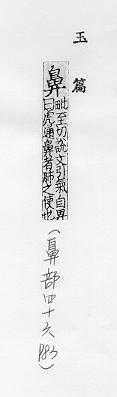 玉篇
鼻
毗至切說文引氣自畀
白虎通鼻者肺之使也
(鼻部四十六 P83)